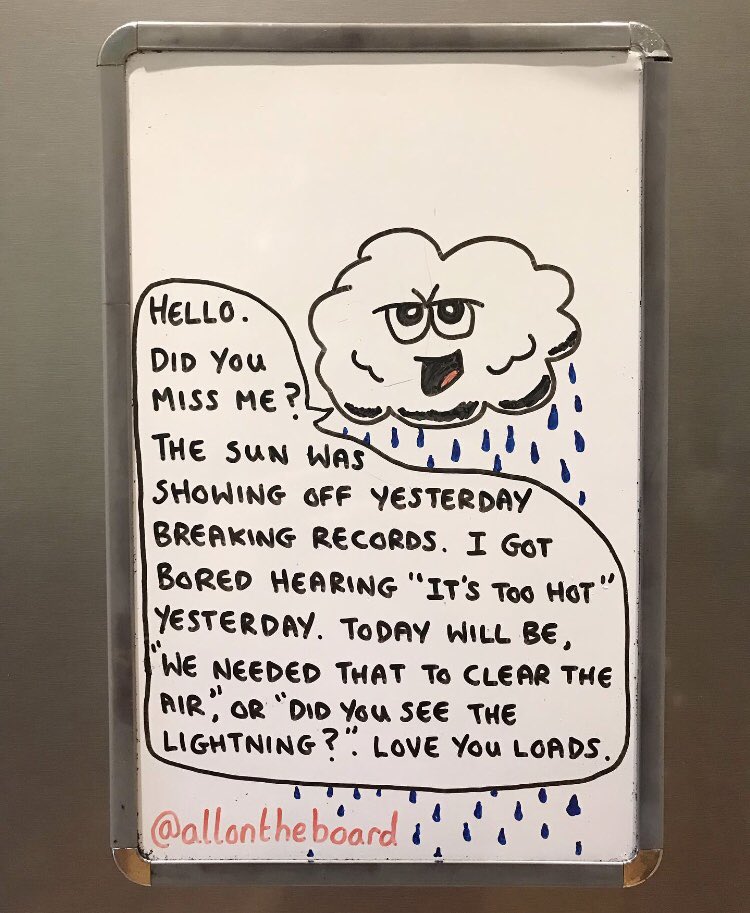 HELLO.
DID YOU
MISS ME?
THE SUN WAS
SHOWING OFF YESTERDAY
BREAKING RECORDS. I GOT
BORED HEARING "IT'S TOO HOT"
YESTERDAY. TODAY WILL BE,
"WE NEEDED THAT TO CLEAR THE
AIR", OR "DID YOU SEE THE
LIGHTNING?". LOVE YOU LOADS.
@allontheboard